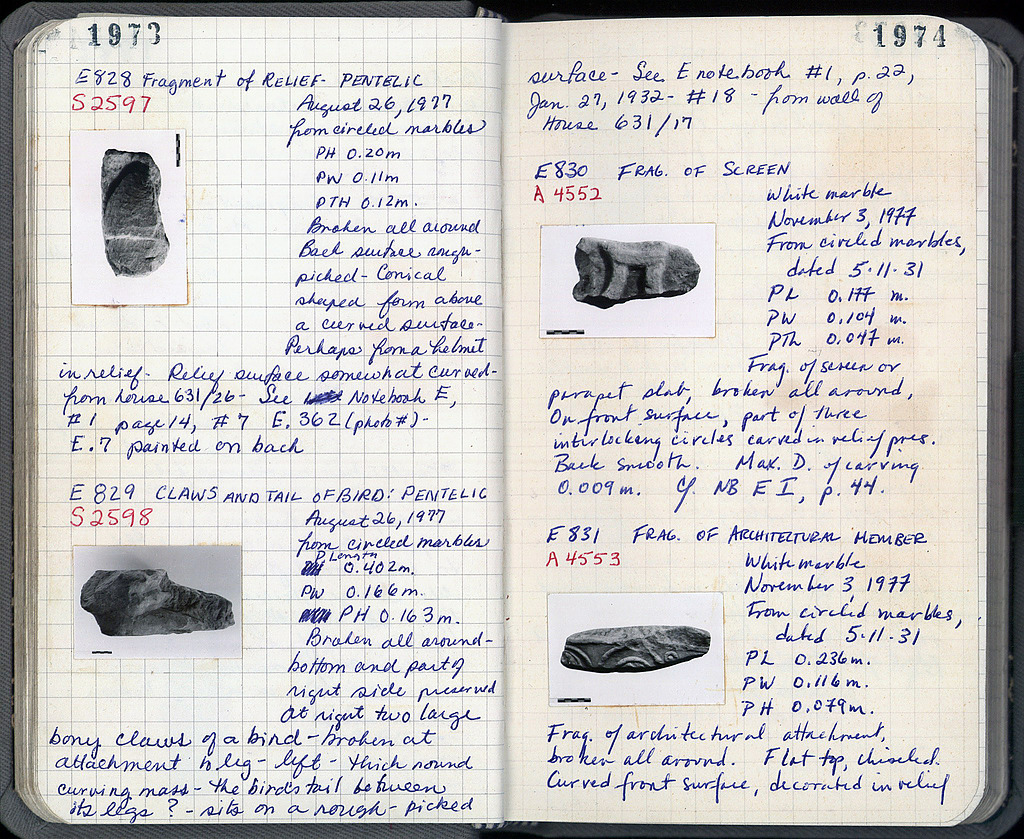 1973
E 828 Fragment of RELIEF - PENTELIC
S 2597
August 26, 1977
from circled marbles
PH 0.20m
PW 0.11m
PTH 0.12m.
Broken all around
Back surface rough-
picked - Conical
shaped form above
a curved surface -
Perhaps from a helmet
in relief - Relief surface somewhat curved -
from house 631/26 - See Notebook E,
#1 page 14, #7 E.362 (photo #) -
E.7 painted on back
E 829 CLAWS AND TAIL OF BIRD: PENTELIC
S 2598
August 26, 1977
from circled marbles
P Length
0.402m.
PW 0.166m.
PH 0.163m.
Broken all around -
bottom and part of
right side preserved
At right two large
bony claws of a bird - broken at
attachment to leg - left - thick round
curving mass - the bird's tail between
its legs? - sits on a rough - picked
1974
surface - See E notebook #1, p. 22,
Jan. 27, 1932 - #18 - from wall of
House 631/17
E 830 FRAG. OF SCREEN
A 4552
White marble
November 3, 1977
From circled marbles,
dated 5-11-31
PL 0.177 m.
PW 0.104 m.
PTh 0.047 m.
Frag. of screen or
parapet slab, broken all around,
On front surface, part of three
interlocking circles carved in relief pres.
Back smooth. Max. D. of carving
0.009m. Cf. NB E I, p. 44.
E 831 FRAG. OF ARCHITECTURAL MEMBER
A 4553
White marble
November 3, 1977
From circled marbles,
dated 5-11-31
PL 0.236m.
PW 0.116m.
PH 0.079m.
Frag. of architectural attachment,
broken all around. Flat top, chiseled.
Curved front surface, decorated in relief